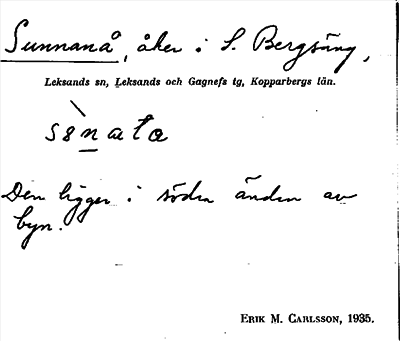 Sunnanå, åker i S. Bergsäng,
Leksands sn, Leksands och Gagnefs tg, Kopparbergs län.
Den ligger i södra änden av
byn.
ERIK M. CARLSSON, 1935.